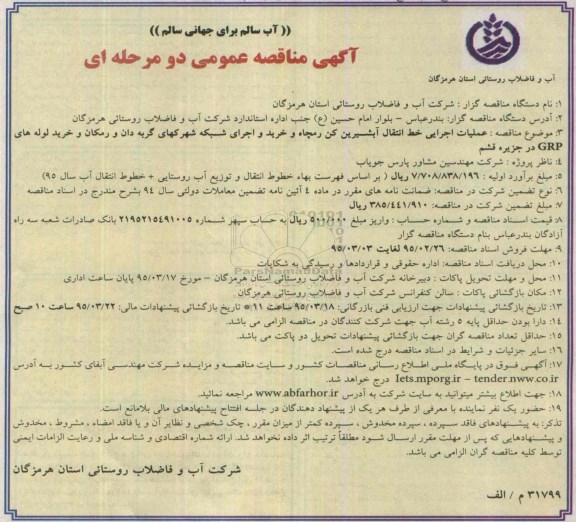 (( آب سالم برای جهانی سالم ))
آگهی مناقصه عمومی دو مرحله ای
آب و فاضلاب روستائی استان هرمزگان
۱: نام دستگاه مناقصه گزار : شرکت آب و فاضلاب روستائی استان هرمزگان
۲: آدرس دستگاه مناقصه گزار: بندرعباس – بلوار امام حسین (ع) جنب اداره استاندارد شرکت آب و فاضلاب روستائی هرمزگان
۳: موضوع مناقصه : عملیات اجرایی خط انتقال آبشیرین کن رمچاه و خرید و اجرای شبکه شهرکهای گربه دان و رمکان و خرید لوله های
GRP در جزیره قشم
۴: ناظر پروژه : شرکت مهندسین مشاور پارس جویاب
۵: مبلغ برآورد اولیه : ۷/۷۰۸/۸۳۸/۱۹۶ ریال ( بر اساس فهرست بهاء خطوط انتقال و توزیع آب روستایی + خطوط انتقال آب سال ۹۵)
۶: نوع تضمین شرکت در مناقصه: ضمانت نامه های مقرر در ماده ۴ آئین نامه تضمین معاملات دولتی سال ۹۴ بشرح مندرج در اسناد مناقصه
۷: مبلغ تضمین شرکت در مناقصه: ۳۸۵/۴۴۱/۹۱۰ ریال
۸: قیمت اسناد مناقصه و شماره حساب : واریز مبلغ ۵۰۰/۰۰۰ ریال به حساب سپهر شماره ۲۱۹۵۲۱۵۴۹۱۰۰۵ بانک صادرات شعبه سه راه
آزادگان بندرعباس بنام دستگاه مناقصه گزار
۹: مهلت فروش اسناد مناقصه: ۹۵/۰۲/۲۶ لغایت ۹۵/۰۳/۰۳
۱۰: محل دریافت اسناد مناقصه: اداره حقوقی و قراردادها و رسیدگی به شکایات
۱۱: محل و مهلت تحویل پاکات : دبیرخانه شرکت آب و فاضلاب روستائی استان هرمزگان – مورخ ۹۵/۰۳/۱۷ پایان ساعت اداری
۱۲: مکان بازگشائی پاکات : سالن کنفرانس شرکت آب و فاضلاب روستائی هرمزگان
۱۳: تاریخ بازگشائی پیشنهادات جهت ارزیابی فنی بازرگانی: ۹۵/۰۳/۱۸ ساعت ۱۱ * تاریخ بازگشائی پیشنهادات مالی: ۹۵/۰۳/۲۲ ساعت ۱۰ صبح
۱۴: دارا بودن حداقل پایه ۵ رشته آب جهت شرکت کنندگان در مناقصه الزامی می باشد.
۱۵: حداقل تعداد مناقصه گران جهت بازگشائی پیشنهادات تحویل دو پاکت می باشد.
۱۶: سایر جزئیات و شرایط در اسناد مناقصه درج شده است.
۱۷: آگهی فوق در پایگاه ملی اطلاع رسانی مناقصات کشور و سایت مناقصه و مزایده شرکت مهندسی آبفای کشور به آدرس
Iets.mporg.ir – tender.nww.co.ir درج خواهد شد.
۱۸: جهت اطلاع بیشتر میتوانید به سایت شرکت به آدرس www.abfarhor.ir مراجعه نمائید.
۱۹: حضور یک نفر نماینده با معرفی از طرف هر یک از پیشنهاد دهندگان در جلسه افتتاح پیشنهادهای مالی بلامانع است.
تذکر: به پیشنهادهای فاقد سپرده ، سپرده مخدوش ، سپرده کمتر از میزان مقرر ، چک شخصی و نظایر آن و یا فاقد امضاء ، مشروط ، مخدوش
و پیشنهادهایی که پس از مهلت مقرر ارسال شود مطلقاً ترتیب اثر داده نخواهد شد. ارائه شماره اقتصادی و شناسه ملی و رعایت الزامات ایمنی
توسط کلیه مناقصه گران الزامی می باشد.
شرکت آب و فاضلاب روستائی استان هرمزگان
۳۱۷۹۹ م / الف